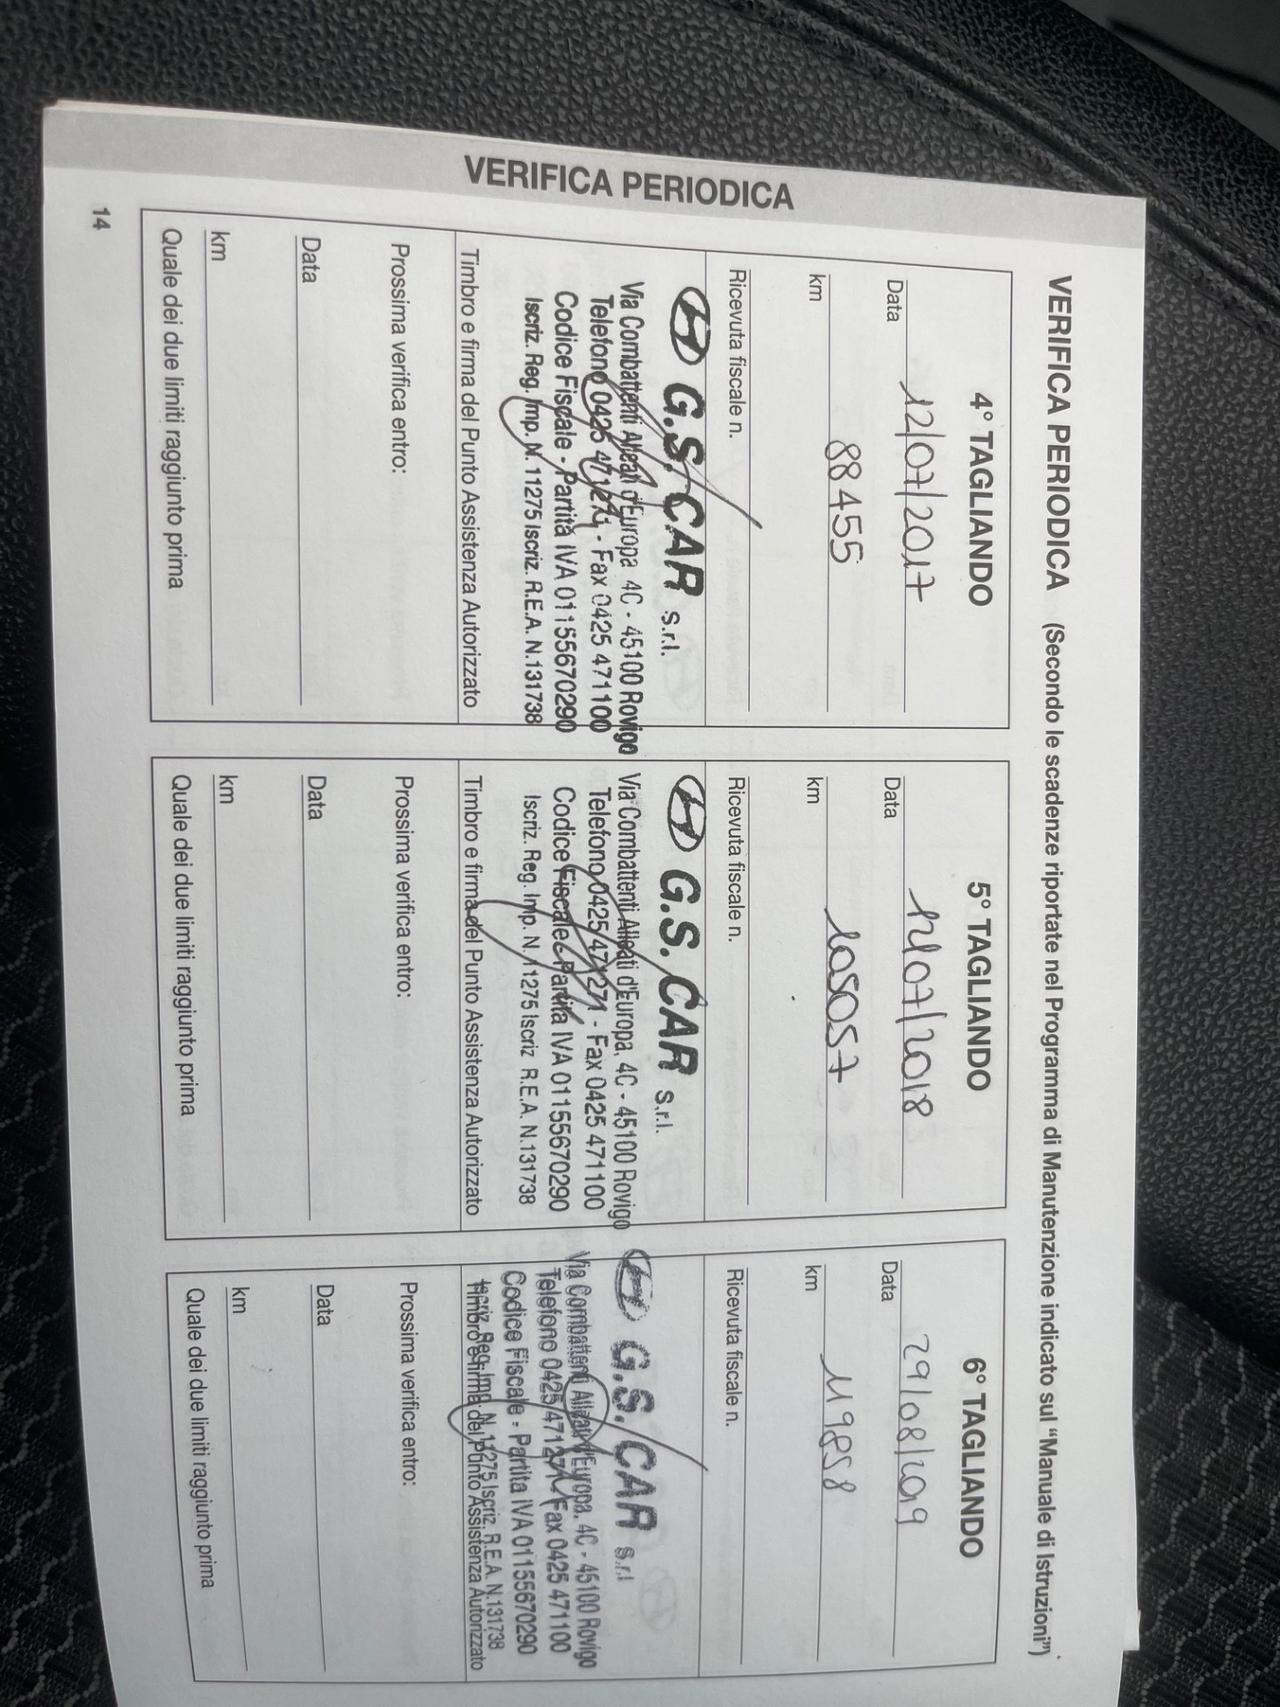 VERIFICA PERIODICA
VERIFICA PERIODICA (Secondo le scadenze riportate nel Programma di Manutenzione indicato sul “Manuale di Istruzioni”)
4° TAGLIANDO
Data 12/07/2017
km 88455
Ricevuta fiscale n.
G.S. CAR s.r.l.
Via Combattenti Alleati d'Europa 4C - 45100 Rovigo
Telefono 0425 471271 - Fax 0425 471100
Codice Fiscale - Partita IVA 01155670290
Iscriz. Reg. Imp. N. 11275 Iscriz. R.E.A. N.131738
Timbro e firma del Punto Assistenza Autorizzato
Prossima verifica entro:
Data
km
Quale dei due limiti raggiunto prima
5° TAGLIANDO
Data 12/07/2018
km 105057
Ricevuta fiscale n.
G.S. CAR s.r.l.
Via Combattenti Alleati d'Europa, 4C - 45100 Rovigo
Telefono 0425/471271 - Fax 0425 471100
Codice Fiscale - Partita IVA 01155670290
Iscriz. Reg. Imp. N. 11275 Iscriz R.E.A. N.131738
Timbro e firma del Punto Assistenza Autorizzato
Prossima verifica entro:
Data
km
Quale dei due limiti raggiunto prima
6° TAGLIANDO
Data 29/08/2019
km 119858
Ricevuta fiscale n.
G.S. CAR s.r.l
Via Combattenti Alleati d'Europa, 4C - 45100 Rovigo
Telefono 0425/471271 Fax 0425 471100
Codice Fiscale - Partita IVA 01155670290
Iscriz. Reg. Imp. N. 11275 Iscriz. R.E.A. N.131738
Timbro e firma del Punto Assistenza Autorizzato
Prossima verifica entro:
Data
km
Quale dei due limiti raggiunto prima
14